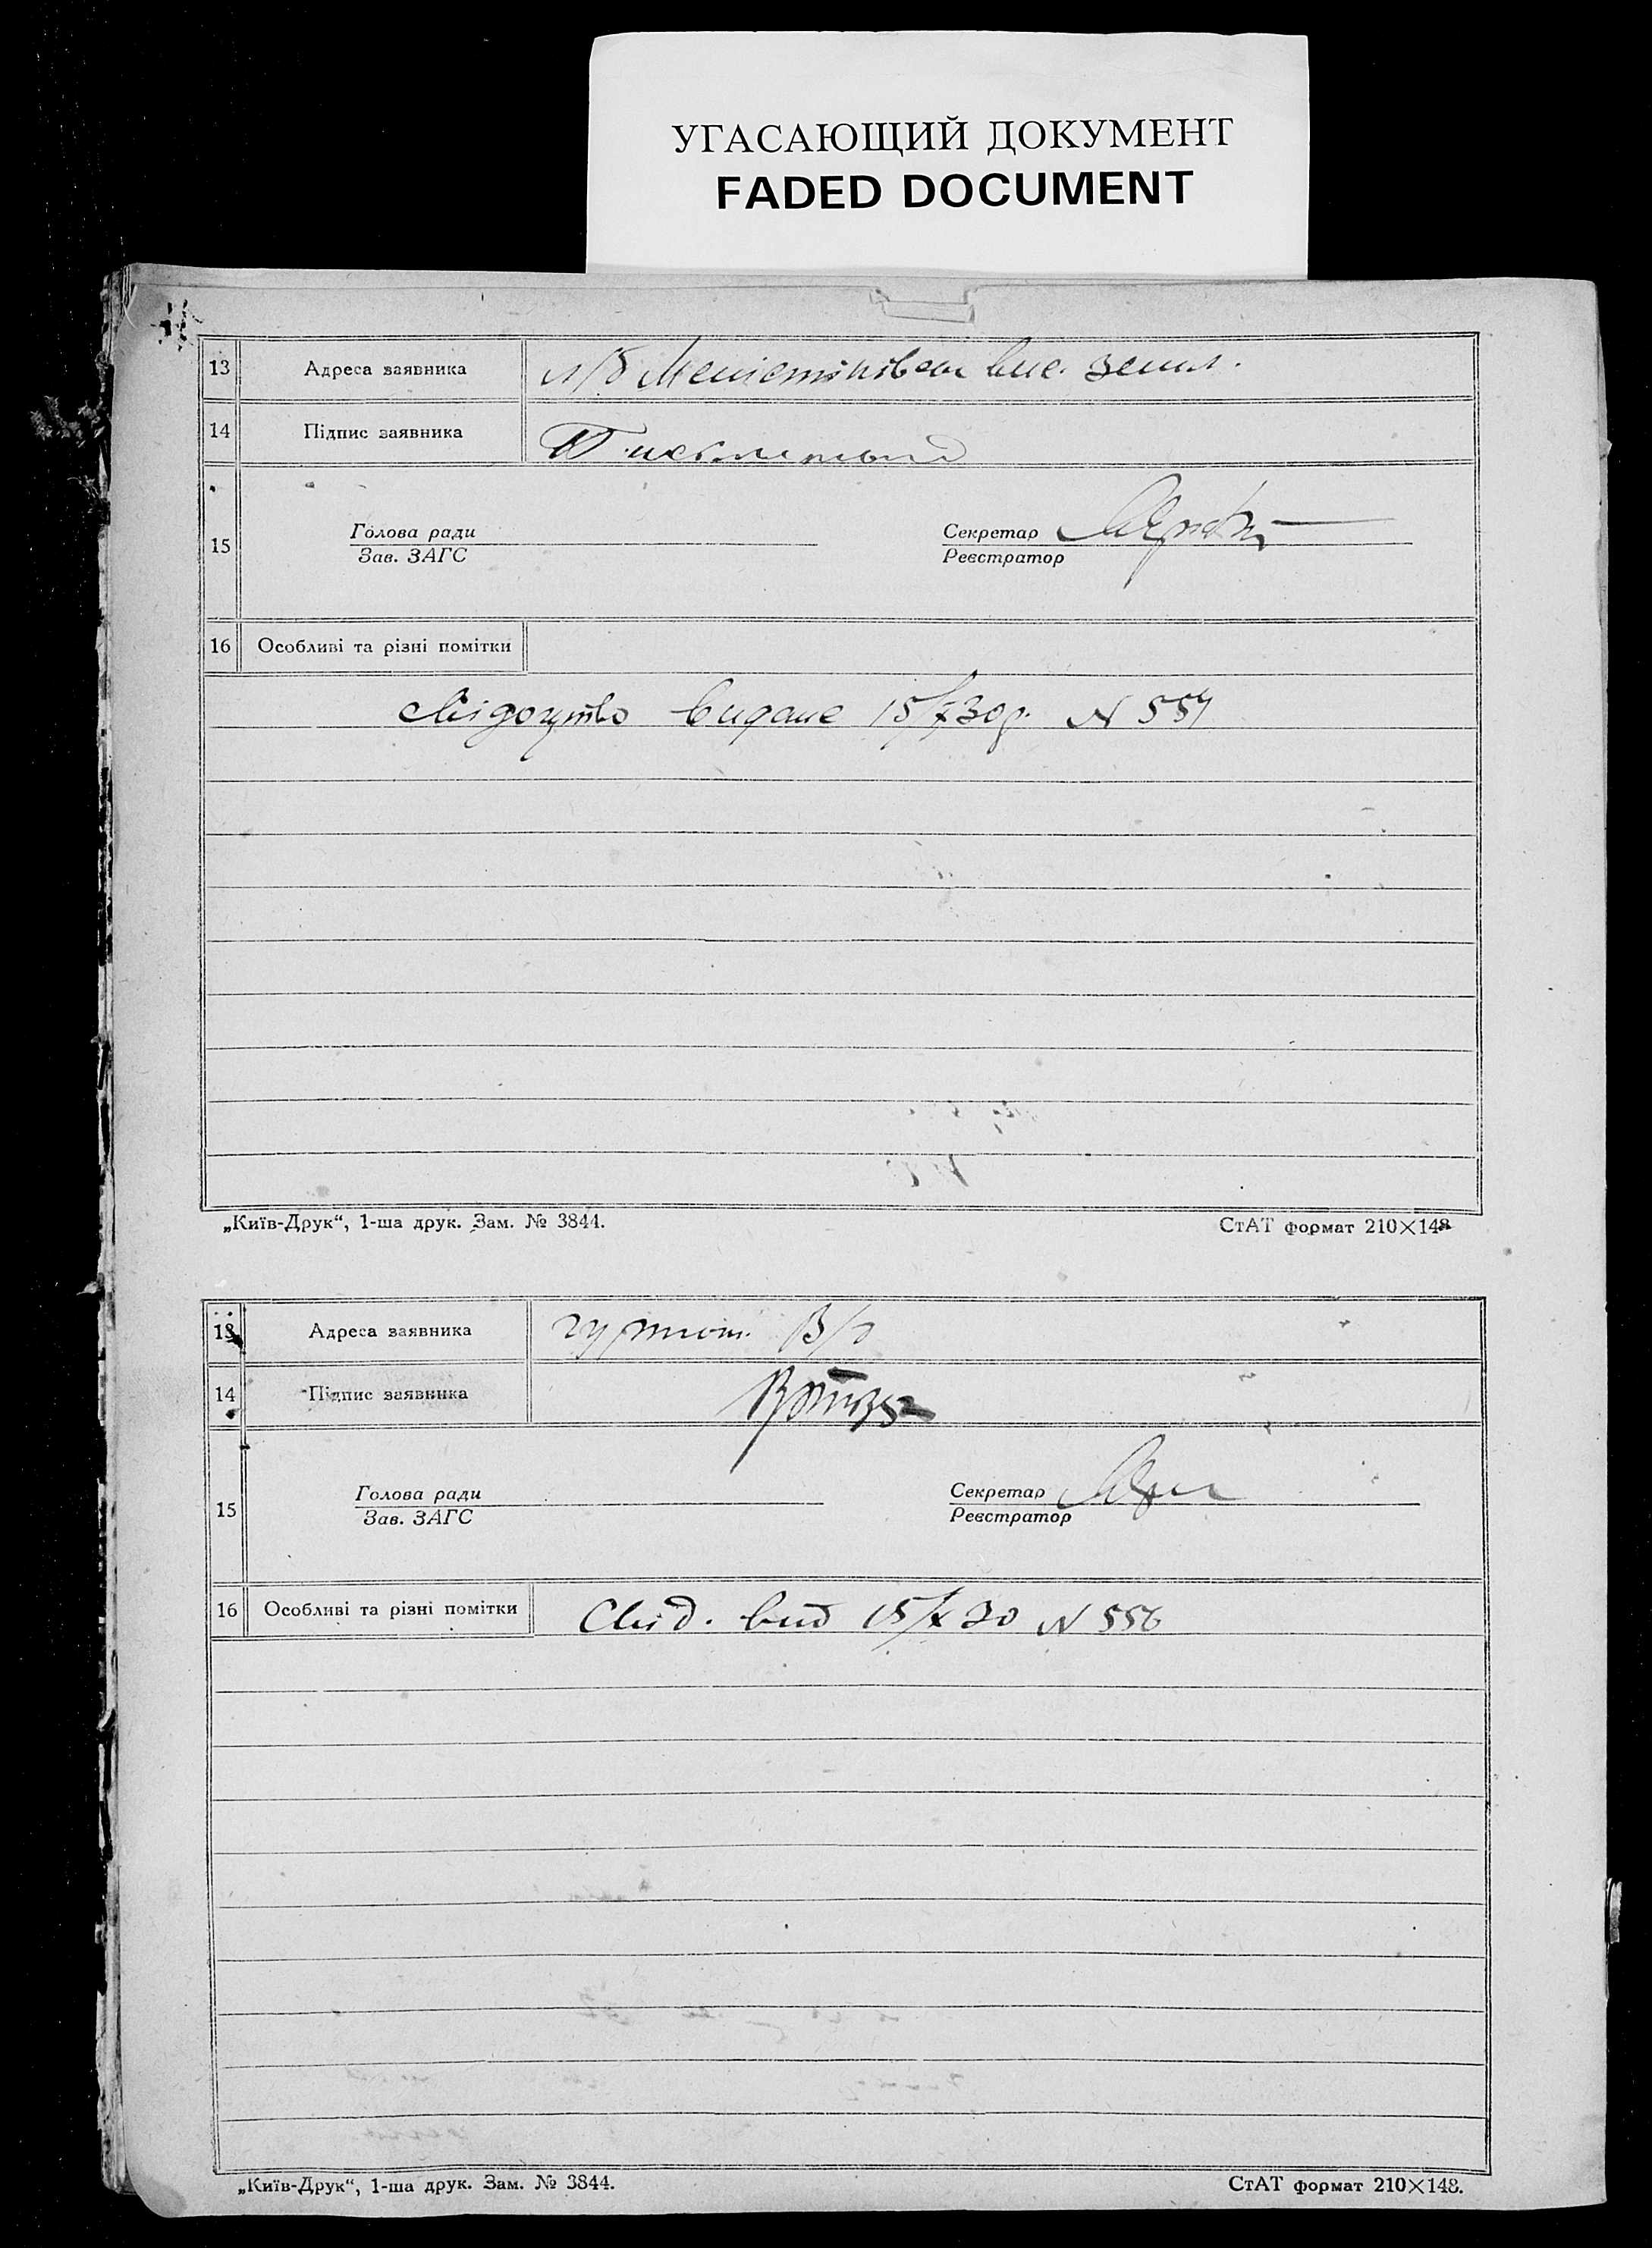 УГАСАЮЩИЙ ДОКУМЕНТ
FADED DOCUMENT
13 Адреса заявника
14 Підпис заявника
15 Голова ради Секретар
Зав. ЗАГС Реєстратор
16 Особливі та різні помітки
Свідоцтво видане 15/X 30р. N 557
„Київ-Друк“, 1-ша друк. Зам. № 3844. СтАТ формат 210×148
13 Адреса заявника
14 Підпис заявника
15 Голова ради Секретар
Зав. ЗАГС Реєстратор
16 Особливі та різні помітки Свід. вид 15/X 30 N 556
„Київ-Друк“, 1-ша друк. Зам. № 3844. СтАТ формат 210×148.